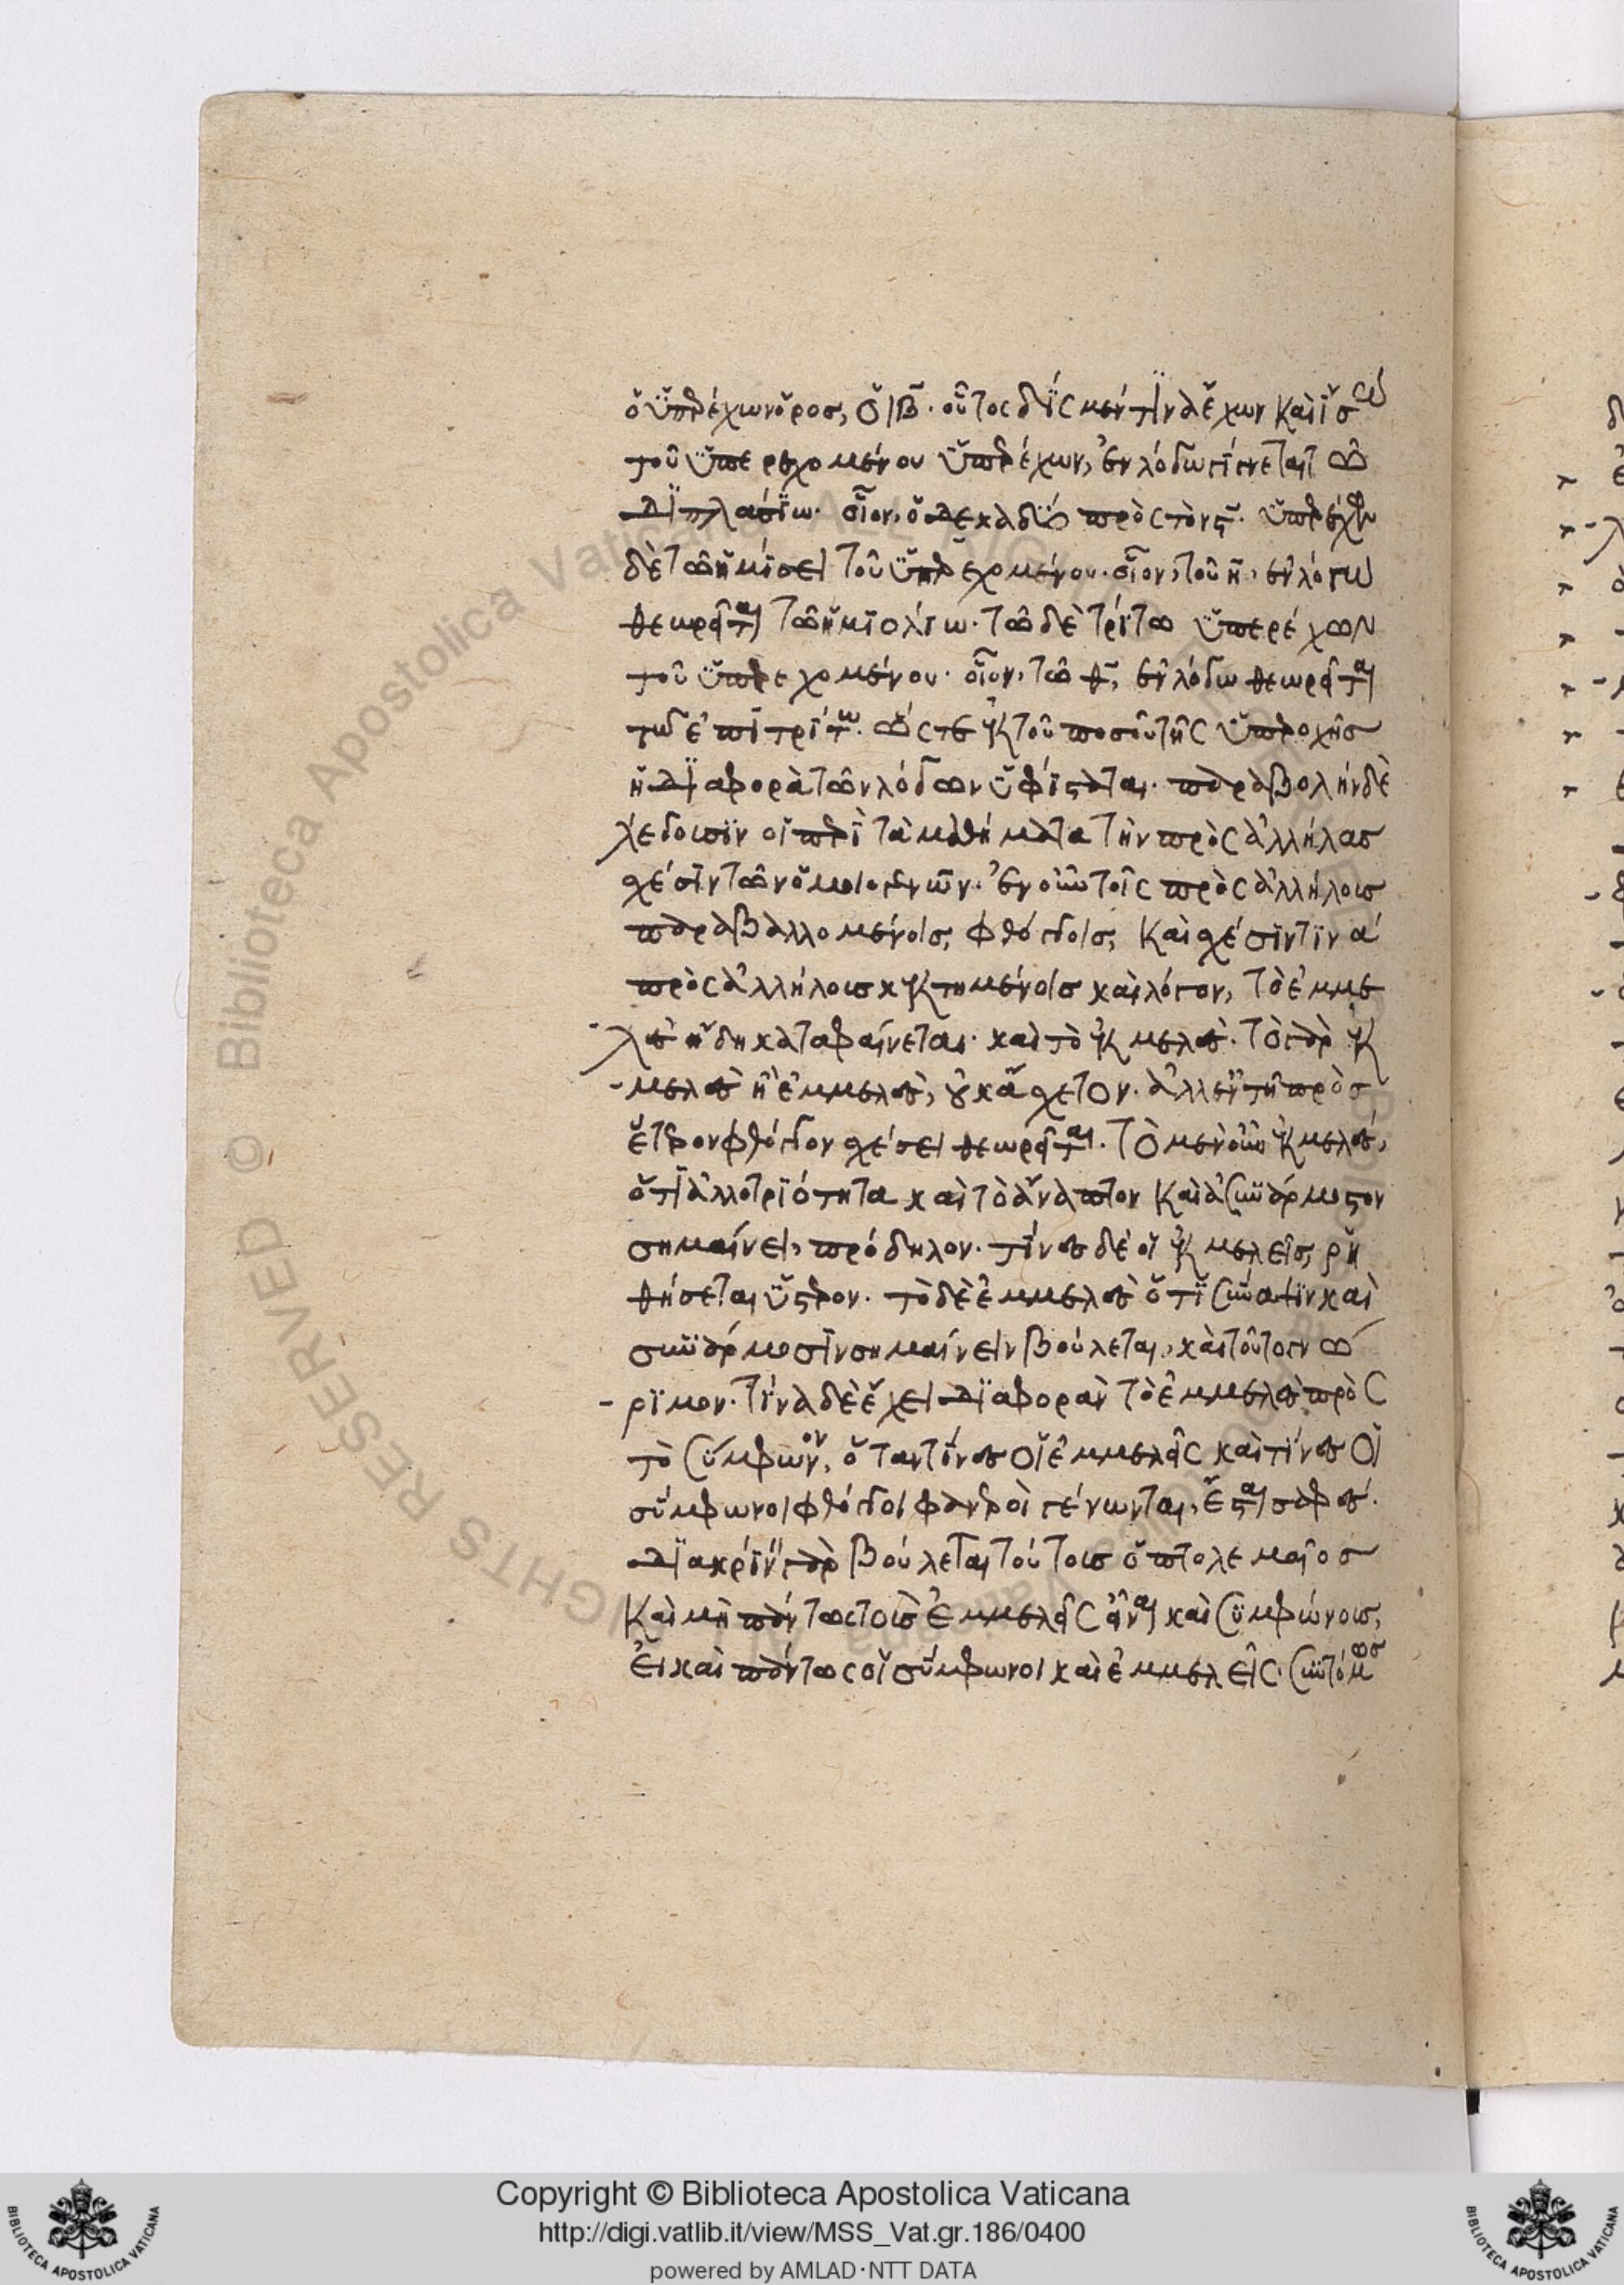 ὁ ὑπερέχων ὅρος, ὁ ιβ̅. οὗτος δὶς μέν τινα ἔχων καὶ ἴσω
τοῦ ὑπερεχομένου ὑπερέχων, ἐν λόγω γίνεται τῶ
διπλασίω. οἷον, ὁ δεκαδύο πρὸς τὸν ϛ̅. ὑπερέχων
δὲ τῶ ἡμίσει τοῦ ὑπερεχομένου. οἷον, τοῦ η̅, ἐν λόγω
θεωρεῖται τῶ ἡμιολίω. τῶ δὲ τρίτω ὑπερέχων
τοῦ ὑπερεχομένου. οἷον, τῶ θ̅, ἐν λόγω θεωρεῖται
τῶ ἐπιτρίτω. ὥστε ἐκ τοῦ ποσοῦ τῆς ὑπεροχῆς
ἡ διαφορὰ τῶν λόγων ὑφίσταται. παραβολὴν δὲ
λέγουσιν οἱ περὶ τὰ μαθήματα τὴν πρὸς ἀλλήλας
σχέσιν τῶν ὁμοιογενῶν. ἐν οὖν τοῖς πρὸς ἀλλήλοις
παραβαλλομένοις φθόγγοις, καὶ σχέσιν τινὰ
πρὸς ἀλλήλοις κεκτημένοις καὶ λόγον, τὸ ἐμμε
λὲς ἤδη καταφαίνεται. καὶ τὸ ἐκμελές. τὸ γὰρ ἐκ
μελὲς ἢ ἐμμελὲς, οὐκ ἄσχετον. ἀλλ' ἐν τῆ πρὸς
ἕτερον φθόγγον σχέσει θεωρεῖται. τὸ μὲν οὖν ἐκμελές,
ὅτι ἀλλοτριότητα καὶ τὸ ἄναπτον καὶ ἀσυνάρμοστον
σημαίνει, πρόδηλον. τίνες δὲ οἱ ἐκμελεῖς, ῥη
θήσεται ὕστερον. τὸ δὲ ἐμμελὲς ὅτι συναφὴν καὶ
συνάρμοσιν σημαίνειν βούλεται, καὶ τοῦτο γνώ
ριμον. τίνα δὲ ἔχει διαφορὰν τὸ ἐμμελὲς πρὸς
τὸ σύμφωνον, ὅταν τίνες οἱ ἐμμελεῖς καὶ τίνες οἱ
σύμφωνοι φθόγγοι φανεροὶ γένωνται, ἔσται σαφές.
διακρίνειν γὰρ βούλεται τούτοις ὁ πτολεμαῖος
καὶ μὴ πάντως τοὺς ἐμμελεῖς εἶναι καὶ συμφώνους,
εἰ καὶ πάντως οἱ σύμφωνοι καὶ ἐμμελεῖς. συντόμως
Copyright © Biblioteca Apostolica Vaticana
http://digi.vatlib.it/view/MSS_Vat.gr.186/0400
powered by AMLAD·NTT DATA